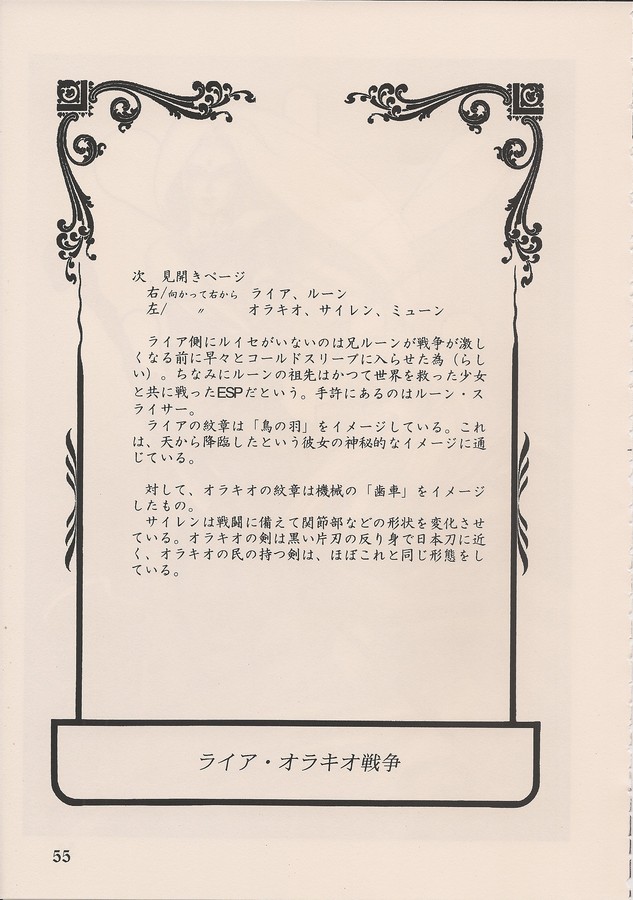 次　見開きページ
右/向かって右から　ライア、ルーン
左/　　〃　　オラキオ、サイレン、ミューン
　ライア側にルイセがいないのは兄ルーンが戦争が激し
くなる前に早々とコールドスリープに入らせた為（らし
い）。ちなみにルーンの祖先はかつて世界を救った少女
と共に戦ったESPだという。手許にあるのはルーン・ス
ライサー。
　ライアの紋章は「鳥の羽」をイメージしている。これ
は、天から降臨したという彼女の神秘的なイメージに通
じている。
　対して、オラキオの紋章は機械の「歯車」をイメージ
したもの。
　サイレンは戦闘に備えて関節部などの形状を変化させ
ている。オラキオの剣は黒い片刃の反り身で日本刀に近
く、オラキオの民の持つ剣は、ほぼこれと同じ形態をし
ている。
ライア・オラキオ戦争
55